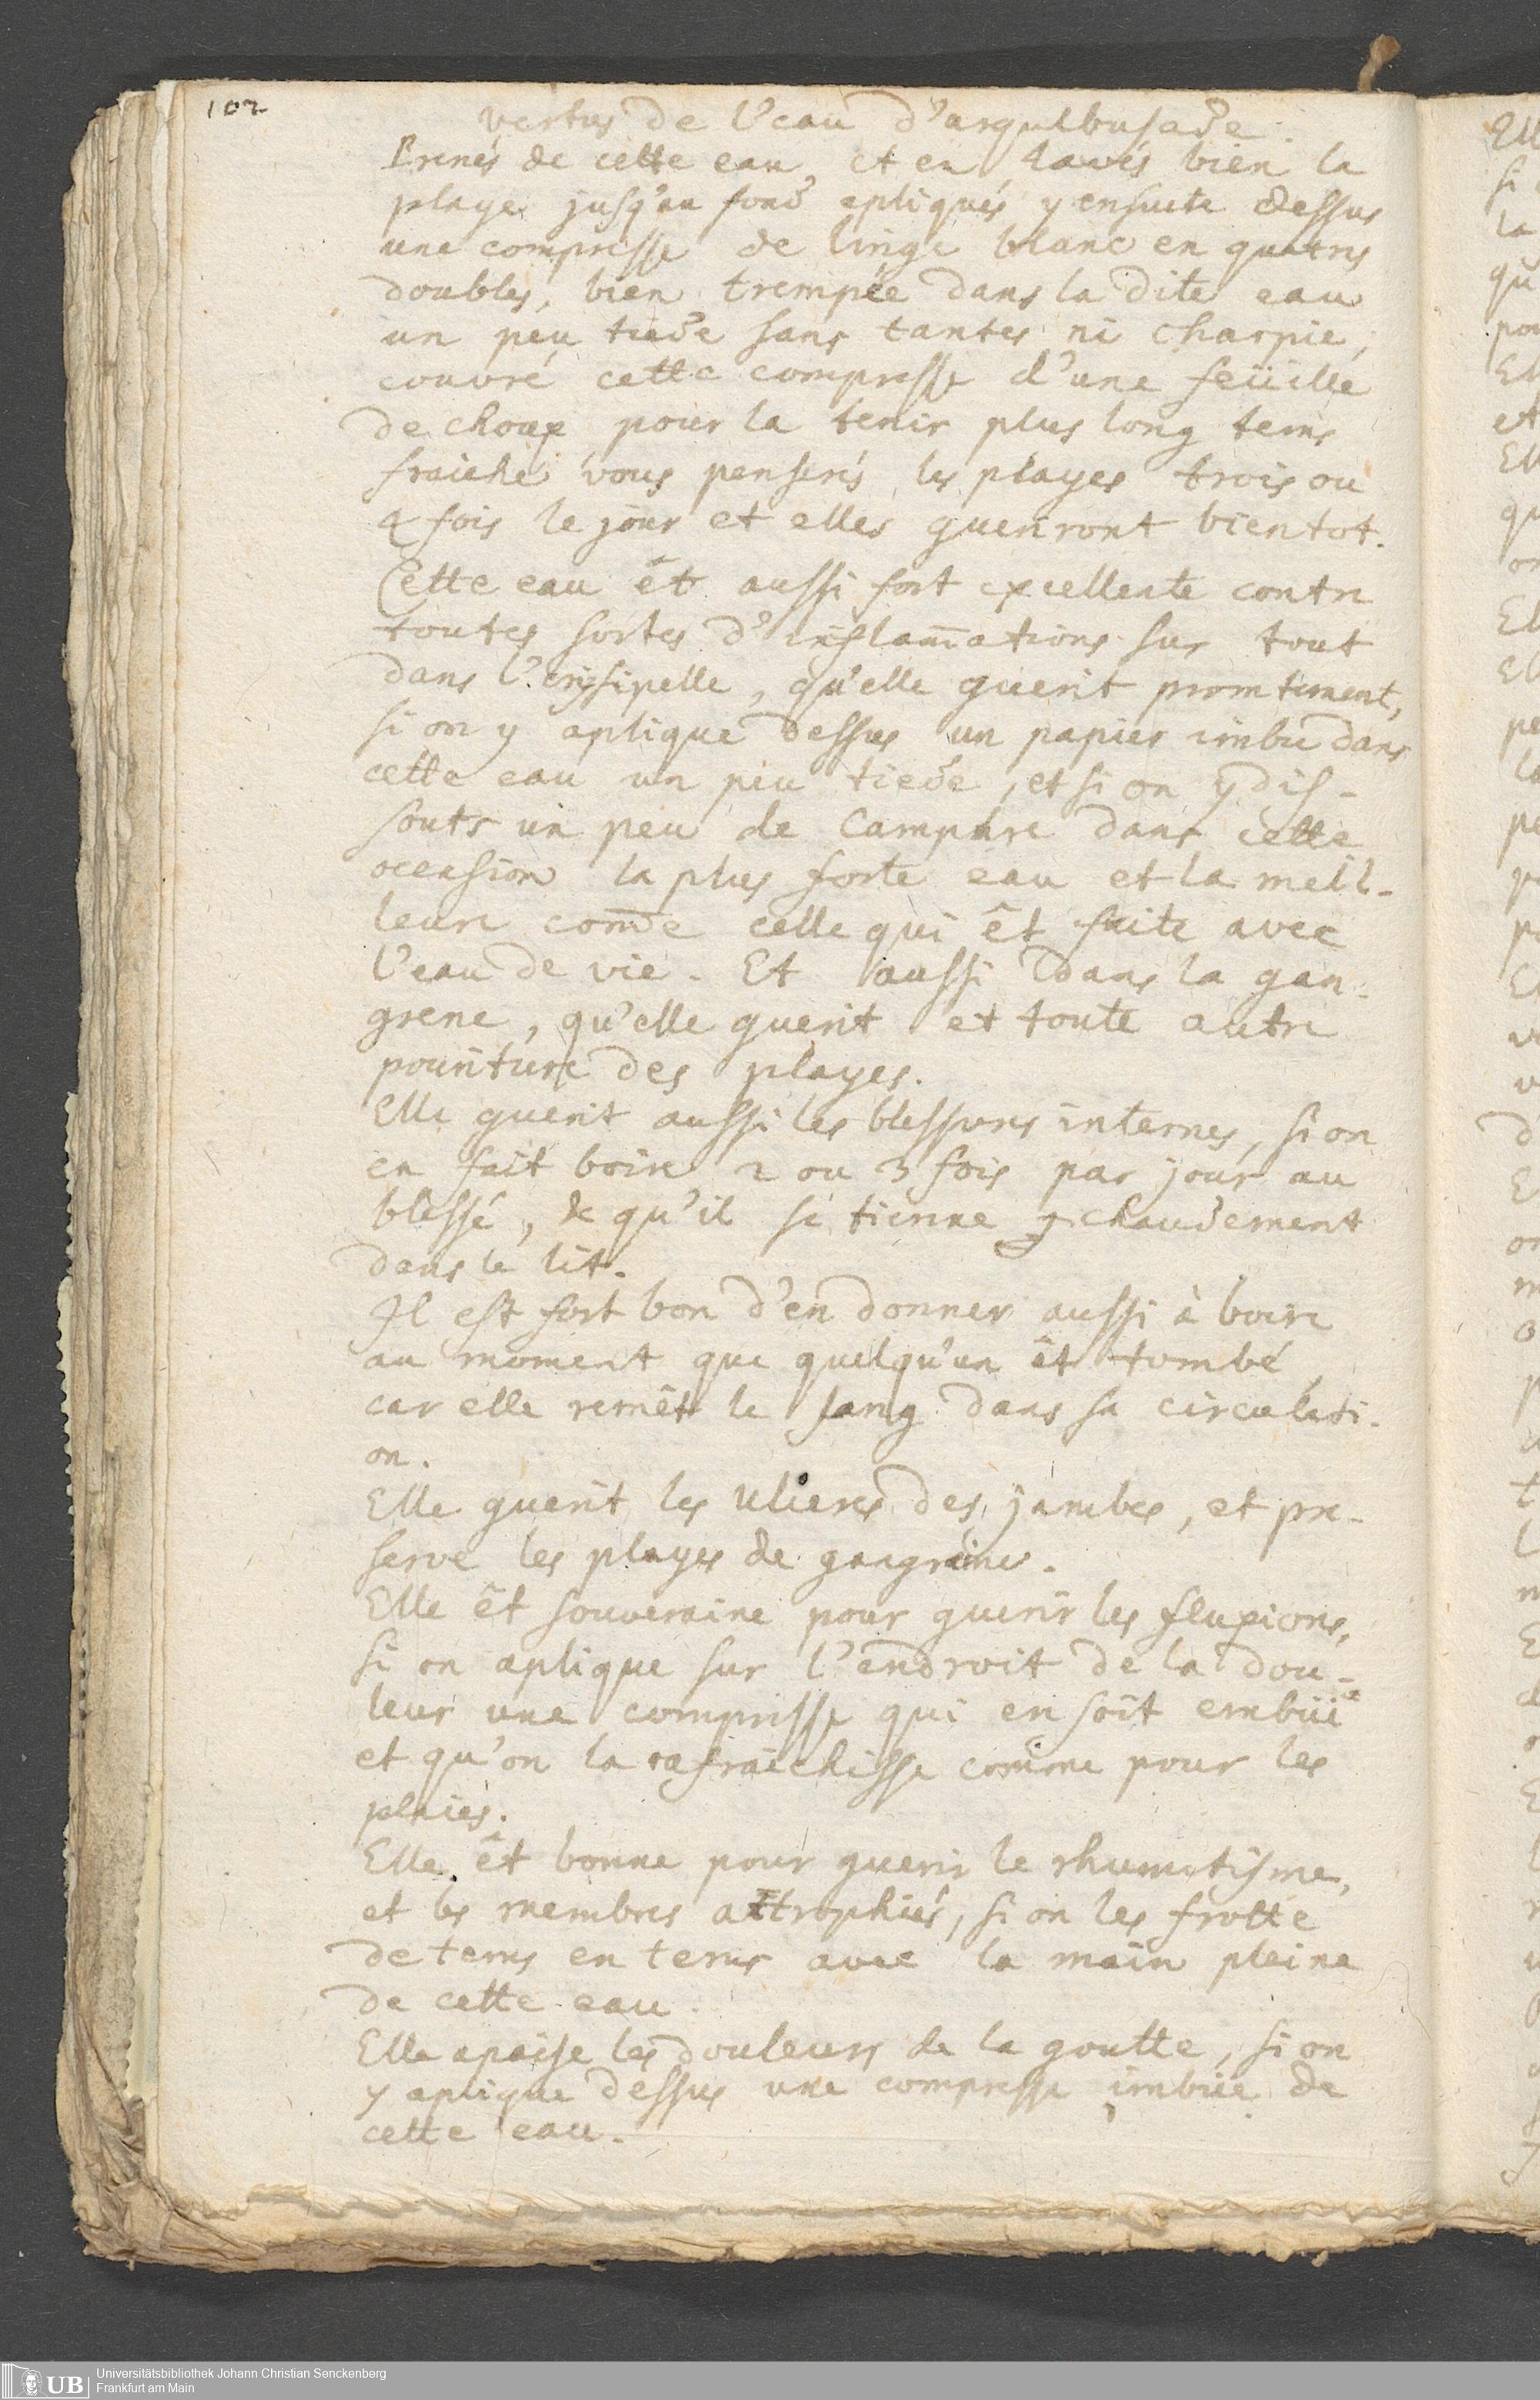 102
vertus de l'eau d'arqulbusade.
Prenés de cette eau, et en lavés bien la
playe jusq'au fond apliqués y ensuite dessus
une compresse de linge blanc en quatres
doubles, bien trempée dans la dite eau
un peu tiede sans tantes ni charpie,
couvré cette compresse d'une feüille
de choux pour la tenir plus long tems
fraiche vous penserés les playes trois ou
4 fois le jour et elles gueriront bientot.
Cette eau êt aussi fort excellente contre
toutes sortes d'inflam̄ations sur tout
dans l'erysipelle, qu'elle guerit promtement,
si on y aplique dessus un papier imbu dans
cette eau un peu tiede, et si on y dis-
souts un peu de Camphre dans cette
occasion la plus forte eau et la meil-
leure com̄e celle qui êt faite avec
l'eau de vie. Et aussi dans la gan-
grene, qu'elle guerit et toute autre
pouriture des playes.
Elle guerit aussi les blessures internes, si on
en fait boire 2 ou 3 fois par jour au
blessé, & qu'il se tienne chaudement
dans le lit.
Il est fort bon d'en donner aussi à boire
au moment que quelqu'un êt tombé,
car elle remêt le sang dans sa circulati-
on.
Elle guerit les Ulceres des jambes, et pre-
serve les playes de gangraine.
Elle êt souveraine pour guerir les fluxions,
si on aplique sur l'endroit de la dou-
leur une compresse qui en soit embüie
et qu'on la rafraichisse comme pour les
plaies.
Elle êt bonne pour guerir le rhumatisme,
et les membres attrophiés, si on les frotte
de tems en tems avec la main pleine
de cette eau.
Elle apaise les douleurs de la goutte, si on
y aplique dessus une compresse imbüe de
cette eau.
UB Universitätsbibliothek Johann Christian Senckenberg
Frankfurt am Main